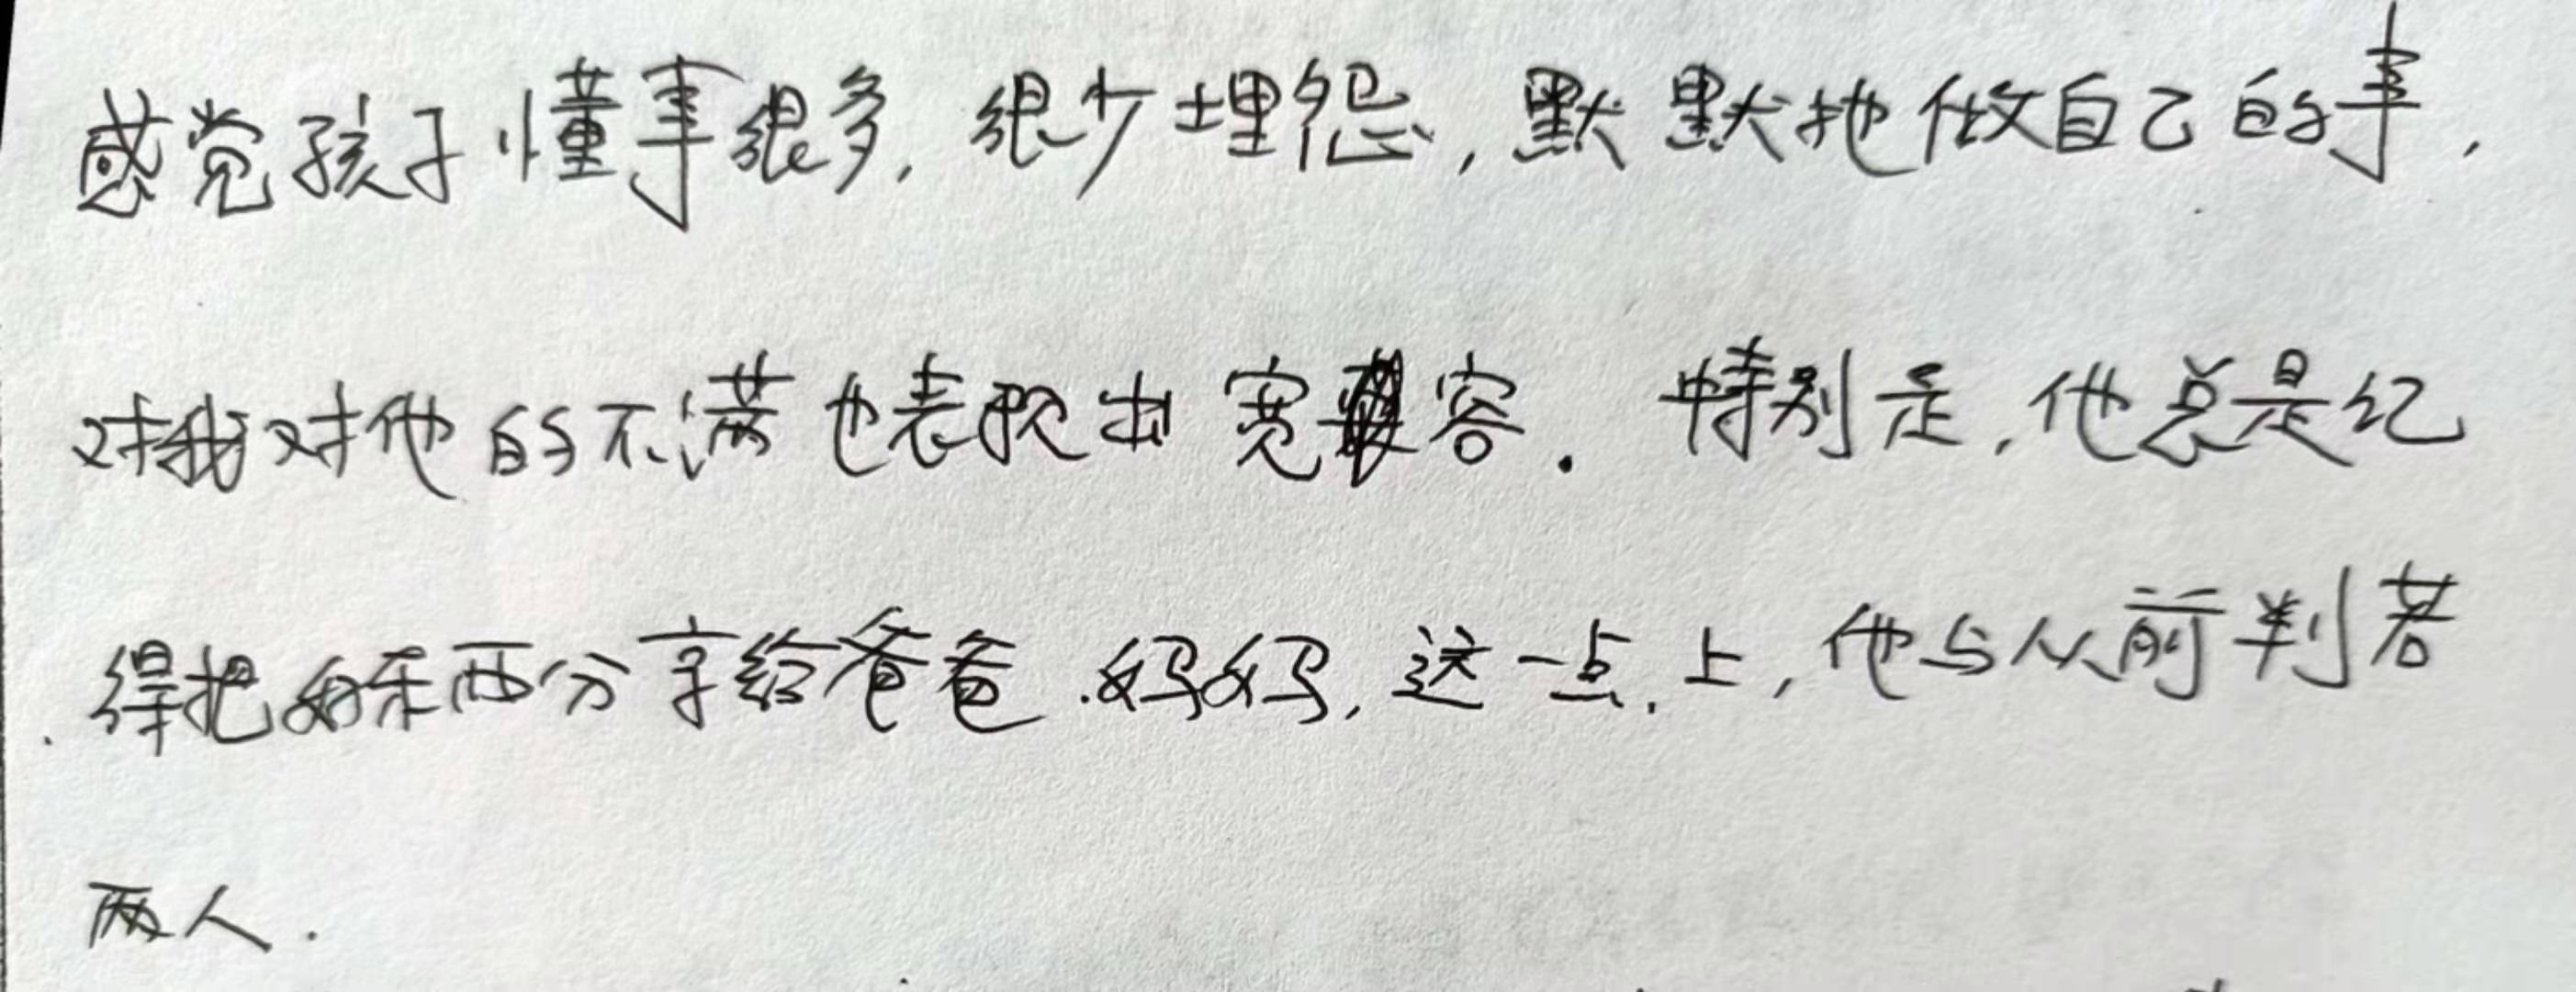 感觉孩子懂事很多，很少埋怨，默默地做自己的事，
对我对他的不满也表现出宽容．特别是，他总是记
得把好东西分享给爸爸．妈妈，这一点．上，他与从前判若
两人．